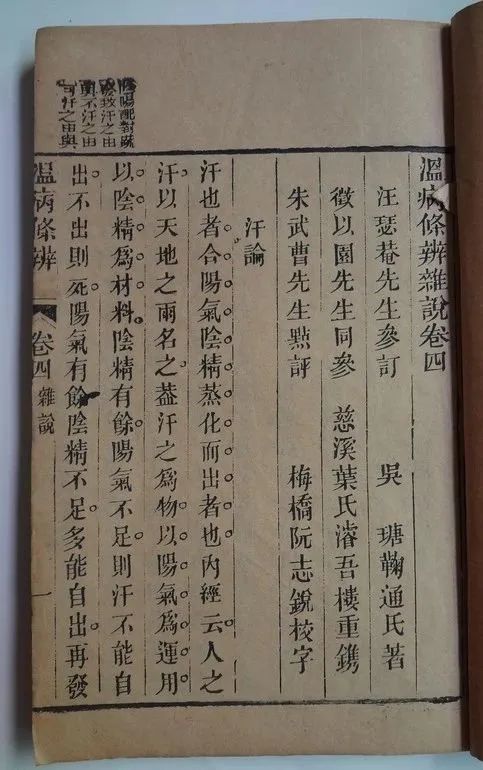 溫病條辨雜說卷四
汪瑟菴先生參訂 吳 瑭鞠通氏著
徵以園先生同參 慈溪葉氏濬吾樓重鐫
朱武曹先生㸃評 梅橋阮志銳校字
汗論
汗也者合陽氣陰精蒸化而出者也內經云人之
汗以天地之雨名之葢汗之爲物以陽氣爲運用
以陰精爲材料陰精有餘陽氣不足則汗不能自
出不出則死陽氣有餘陰精不足多能自出再發
陰陽配對疏
致汗之由
與不汗之由
可汗之由與
溫病條辨
卷四雜說
一